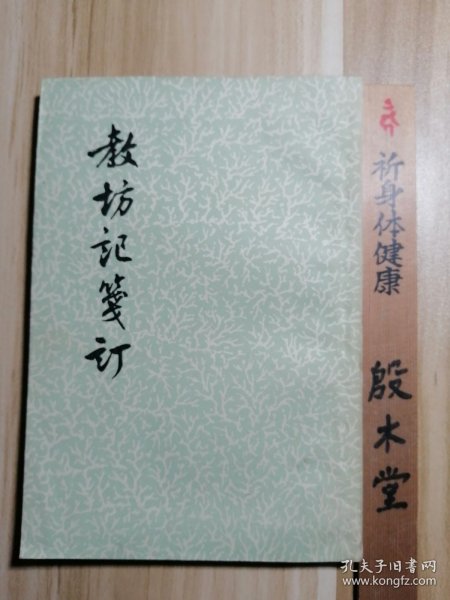 教坊记笺订
祈身体健康
殷木堂
孔夫子旧书网
www.kongfz.com